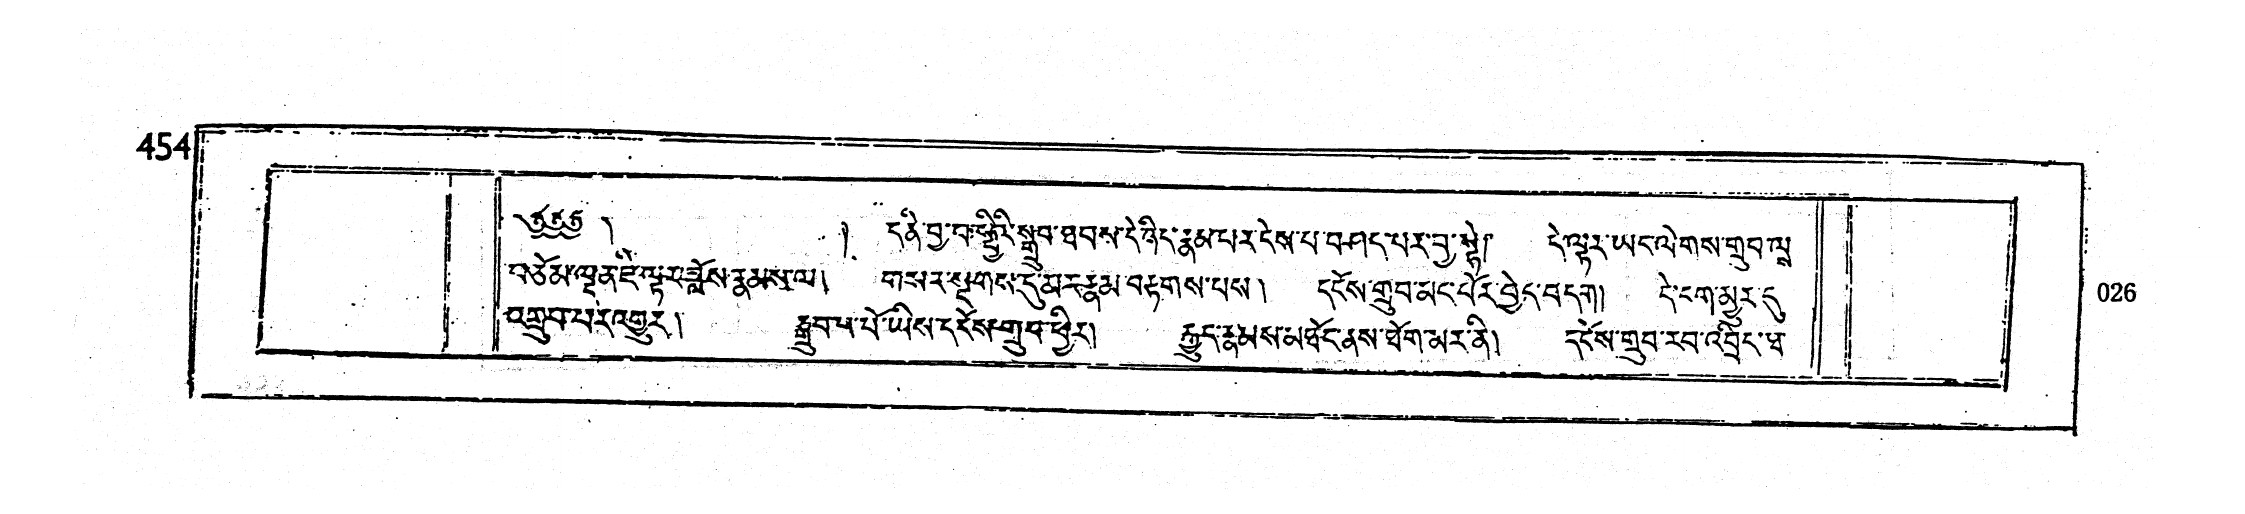 454
༄༅༅། ། དནི་བྱ་བ་ཕྱིརི་སྒྲུབ་ཐབས་དེ་ཉིད་རྣམ་པར་ངེས་པ་བཤད་པར་བྱ་སྟེ། དེ་ལྟར་ཡང་ལེགས་གྲུབ་ལྷ
བཅོམ་ལྡན་ཇི་ལྟར་ཟློས་རྣམས་ལ། གསར་སྔགས་དུ་མར་རྣམ་བརྟགས་པས། དངོས་གྲུབ་མང་པོར་བྱེད་བདག། དེ་ངག་མྱུར་དུ
འགྲུབ་པར་འགྱུར། སྒྲུབ་པ་པོ་ཡིས་དངོས་གྲུབ་ཕྱིར། རྒྱུད་རྣམས་མཐོང་ནས་ཐོག་མར་ནི། དངོས་གྲུབ་རབ་འབྲིང་ཐ
026